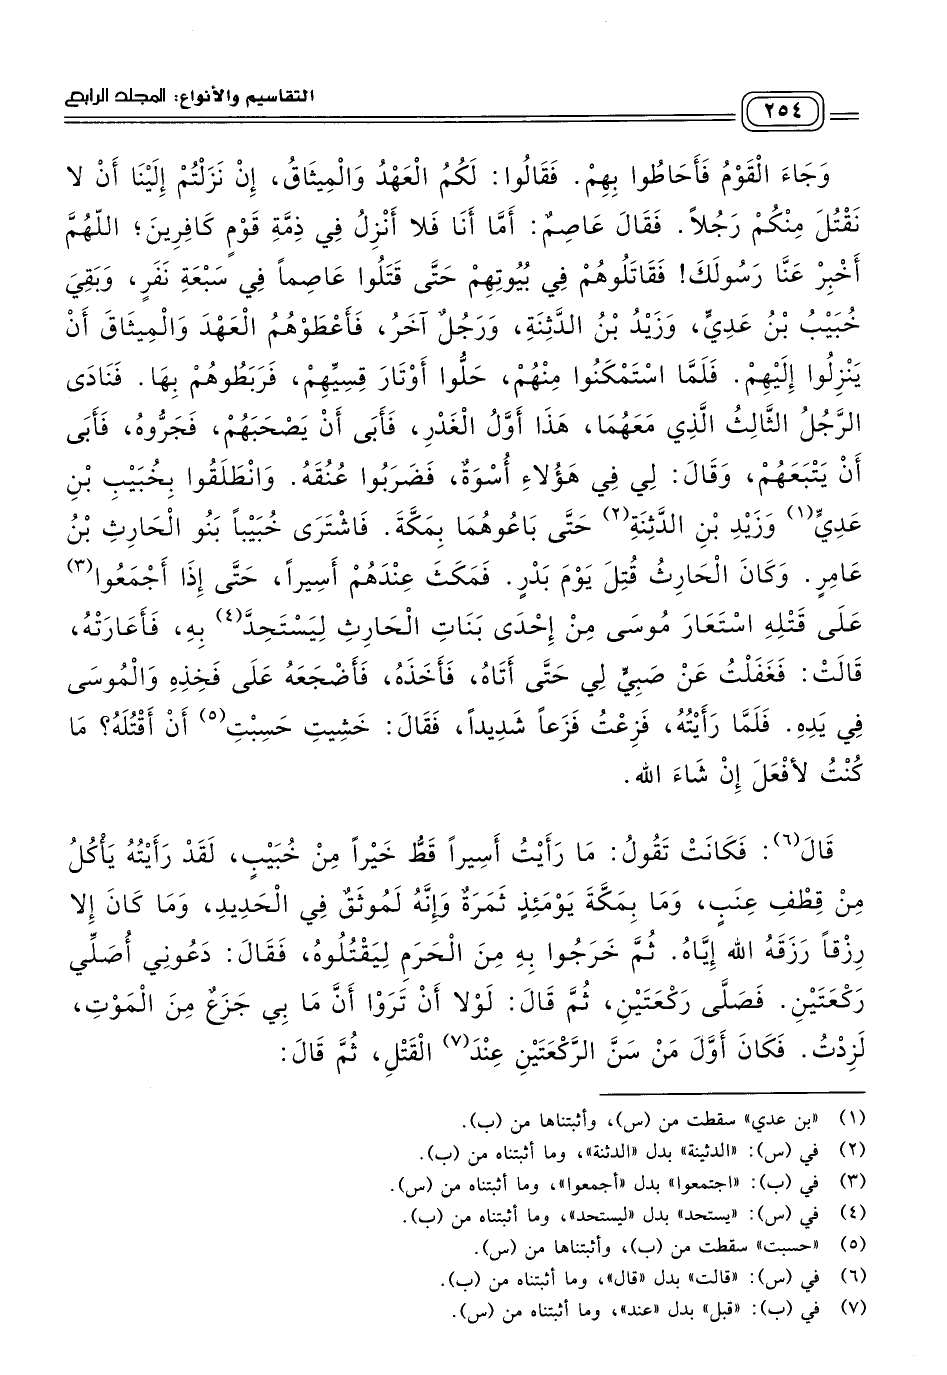 التقاسيم والأنواع: المجلد الرابع
٢٥٤
وَجَاءَ الْقَوْمُ فَأَحَاطُوا بِهِمْ. فَقَالُوا: لَكُمُ الْعَهْدُ وَالْمِيثَاقُ، إِنْ نَزَلْتُمْ إِلَيْنَا أَنْ لا
نَقْتُلَ مِنْكُمْ رَجُلاً. فَقَالَ عَاصِمٌ: أَمَّا أَنَا فَلا أَنْزِلُ فِي ذِمَّةِ قَوْمٍ كَافِرِينَ؛ اللّهُمَّ
أَخْبِرْ عَنَّا رَسُولَكَ! فَقَاتَلُوهُمْ فِي بُيُوتِهِمْ حَتَّى قَتَلُوا عَاصِماً فِي سَبْعَةِ نَفَرٍ، وَبَقِيَ
خُبَيْبُ بْنُ عَدِيٍّ، وَزَيْدُ بْنُ الدَّثِنَةِ، وَرَجُلٌ آخَرُ، فَأَعْطَوْهُمُ الْعَهْدَ وَالْمِيثَاقَ أَنْ
يَنْزِلُوا إِلَيْهِمْ. فَلَمَّا اسْتَمْكَنُوا مِنْهُمْ، حَلُّوا أَوْتَارَ قِسِيِّهِمْ، فَرَبَطُوهُمْ بِهَا. فَنَادَى
الرَّجُلُ الثَّالِثُ الَّذِي مَعَهُمَا، هَذَا أَوَّلُ الْغَدْرِ، فَأَبَى أَنْ يَصْحَبَهُمْ، فَجَرُّوهُ، فَأَبَى
أَنْ يَتْبَعَهُمْ، وَقَالَ: لِي فِي هَؤُلاءِ أُسْوَةٌ، فَضَرَبُوا عُنُقَهُ. وَانْطَلَقُوا بِخُبَيْبِ بْنِ
عَدِيٍّ(١) وَزَيْدِ بْنِ الدَّثِنَةِ(٢) حَتَّى بَاعُوهُمَا بِمَكَّةَ. فَاشْتَرَى خُبَيْباً بَنُو الْحَارِثِ بْنُ
عَامِرٍ. وَكَانَ الْحَارِثُ قُتِلَ يَوْمَ بَدْرٍ. فَمَكَثَ عِنْدَهُمْ أَسِيراً، حَتَّى إِذَا أَجْمَعُوا(٣)
عَلَى قَتْلِهِ اسْتَعَارَ مُوسَى مِنْ إِحْدَى بَنَاتِ الْحَارِثِ لِيَسْتَحِدَّ(٤) بِهِ، فَأَعَارَتْهُ،
قَالَتْ: فَغَفَلْتُ عَنْ صَبِيٍّ لِي حَتَّى أَتَاهُ، فَأَخَذَهُ، فَأَضْجَعَهُ عَلَى فَخِذِهِ وَالْمُوسَى
فِي يَدِهِ. فَلَمَّا رَأَيْتُهُ، فَزِعْتُ فَزَعاً شَدِيداً، فَقَالَ: خَشِيتِ حَسِبْتِ(٥) أَنْ أَقْتُلَهُ؟ مَا
كُنْتُ لأَفْعَلَ إِنْ شَاءَ الله.
قَالَ(٦): فَكَانَتْ تَقُولُ: مَا رَأَيْتُ أَسِيراً قَطُّ خَيْراً مِنْ خُبَيْبٍ، لَقَدْ رَأَيْتُهُ يَأْكُلُ
مِنْ قِطْفِ عِنَبٍ، وَمَا بِمَكَّةَ يَوْمَئِذٍ ثَمَرَةٌ وَإِنَّهُ لَمُوثَقٌ فِي الْحَدِيدِ، وَمَا كَانَ إِلا
رِزْقاً رَزَقَهُ الله إِيَّاهُ. ثُمَّ خَرَجُوا بِهِ مِنَ الْحَرَمِ لِيَقْتُلُوهُ، فَقَالَ: دَعُونِي أُصَلِّي
رَكْعَتَيْنِ. فَصَلَّى رَكْعَتَيْنِ، ثُمَّ قَالَ: لَوْلا أَنْ تَرَوْا أَنَّ مَا بِي جَزَعٌ مِنَ الْمَوْتِ،
لَزِدْتُ. فَكَانَ أَوَّلَ مَنْ سَنَّ الرَّكْعَتَيْنِ عِنْدَ(٧) الْقَتْلِ، ثُمَّ قَالَ:
(١) «بن عدي» سقطت من (س)، وأثبتناها من (ب).
(٢) في (س): «الدثينة» بدل «الدثنة»، وما أثبتناه من (ب).
(٣) في (ب): «اجتمعوا» بدل «أجمعوا»، وما أثبتناه من (س).
(٤) في (س): «يستحد» بدل «ليستحد»، وما أثبتناه من (ب).
(٥) «حسبت» سقطت من (ب)، وأثبتناها من (س).
(٦) في (س): «قالت» بدل «قال»، وما أثبتناه من (ب).
(٧) في (ب): «قبل» بدل «عند»، وما أثبتناه من (س).